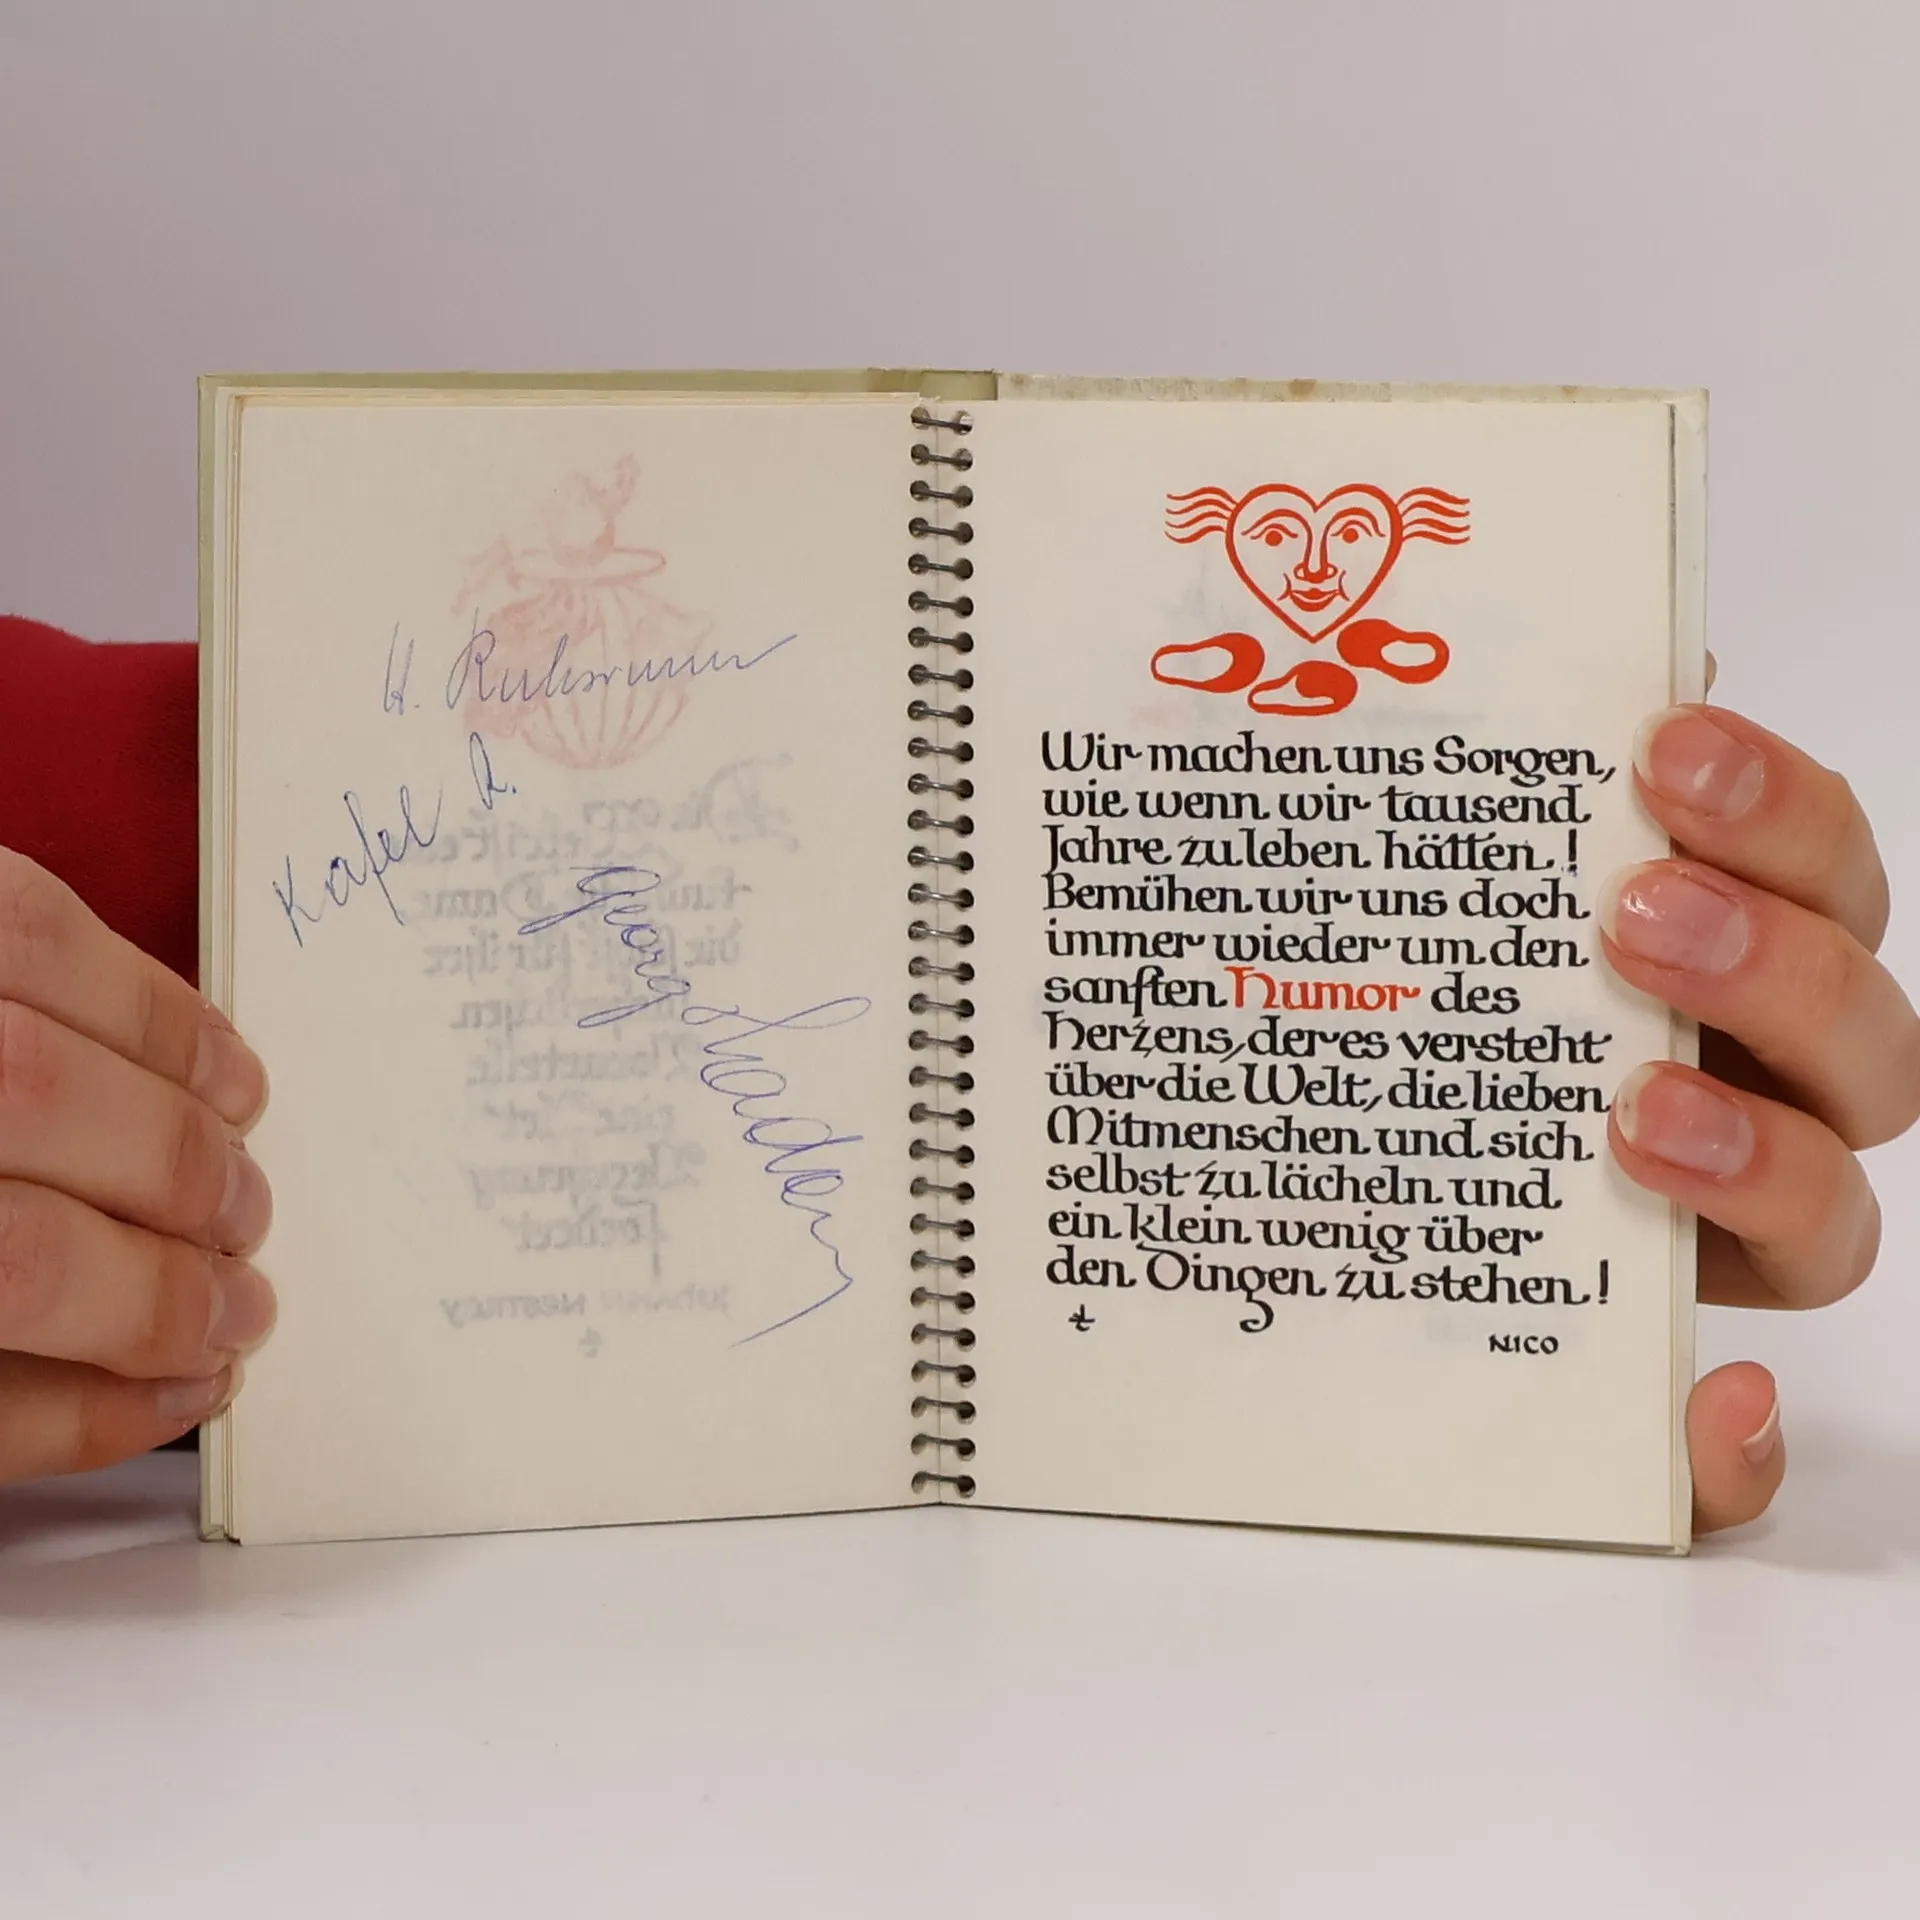 Kafel R.
Georg
Wir machen uns Sorgen,
wie wenn wir tausend
Jahre zu leben hätten!
Bemühen wir uns doch
immer wieder um den
sanften Humor des
Herzens, der es versteht
über die Welt, die lieben
Mitmenschen und sich
selbst zu lächeln und
ein klein wenig über
den Dingen zu stehen!
NICO